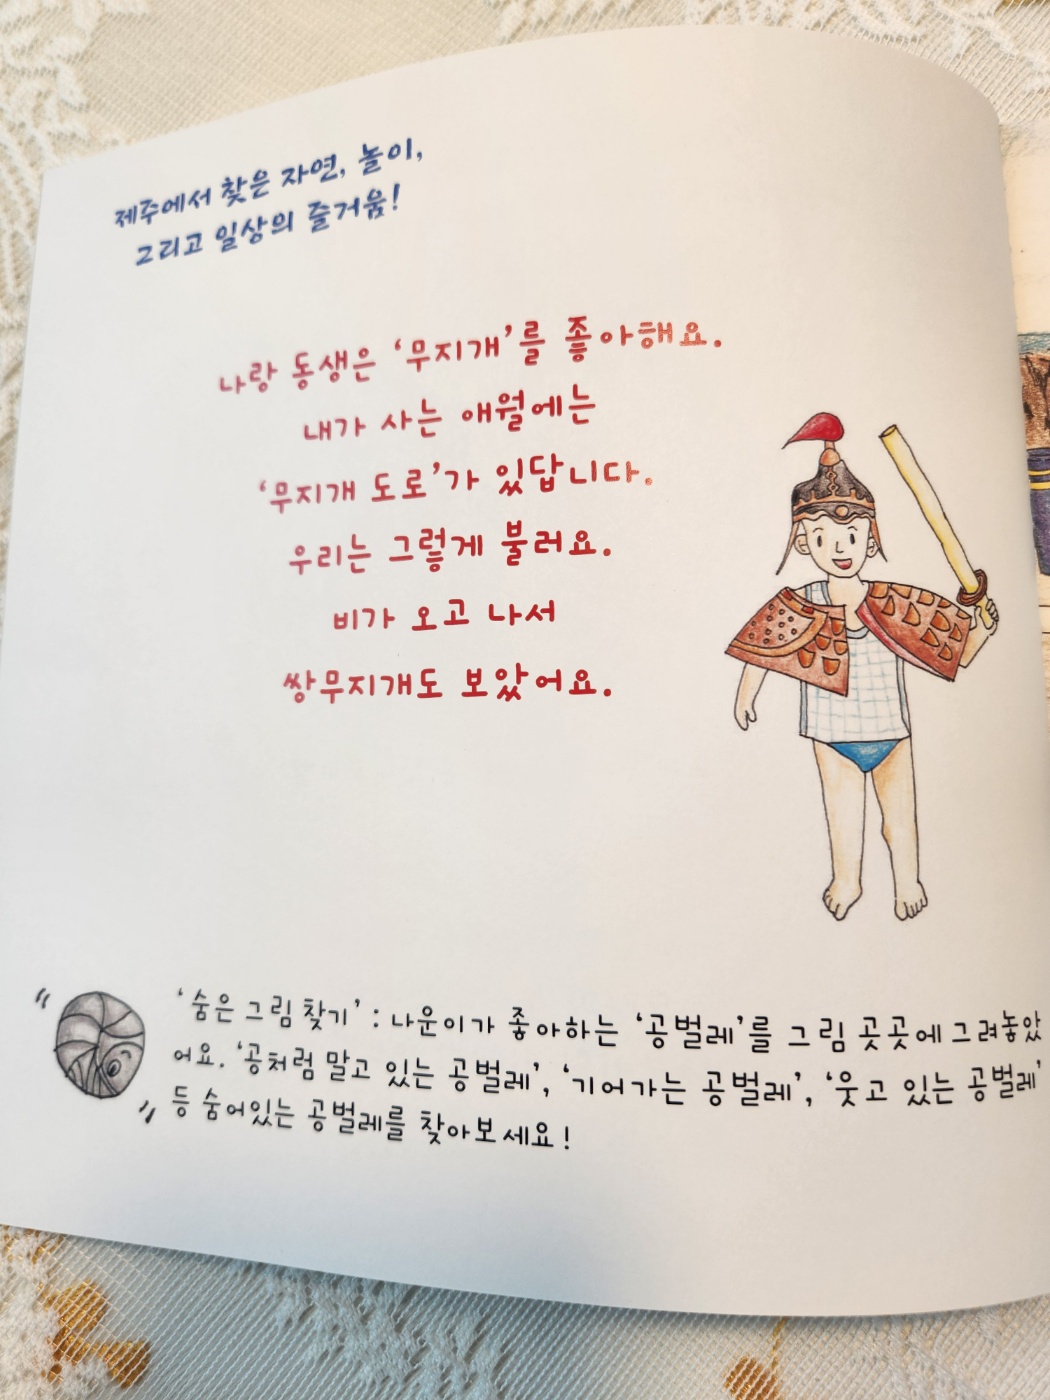 제주에서 찾은 자연, 놀이,
그리고 일상의 즐거움!
나랑 동생은 ‘무지개’를 좋아해요.
내가 사는 애월에는
‘무지개 도로’가 있답니다.
우리는 그렇게 불러요.
비가 오고 나서
쌍무지개도 보았어요.
‘숨은 그림 찾기’ : 나운이가 좋아하는 ‘공벌레’를 그림 곳곳에 그려놓았
어요. ‘공처럼 말고 있는 공벌레’, ‘기어가는 공벌레’, ‘웃고 있는 공벌레’
등 숨어있는 공벌레를 찾아보세요!